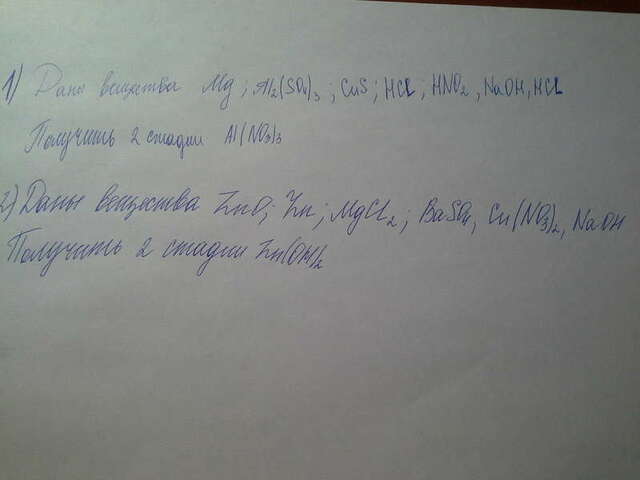 1) Даны вещества Mg; Al₂(SO₄)₃; CuS; HCl; HNO₃, NaOH, HCl
Получить 2 стадии Al(NO₃)₃
2) Даны вещества ZnO; Zn; MgCl₂; BaSO₄, Cu(NO₃)₂, NaOH
Получить 2 стадии Zn(OH)₂